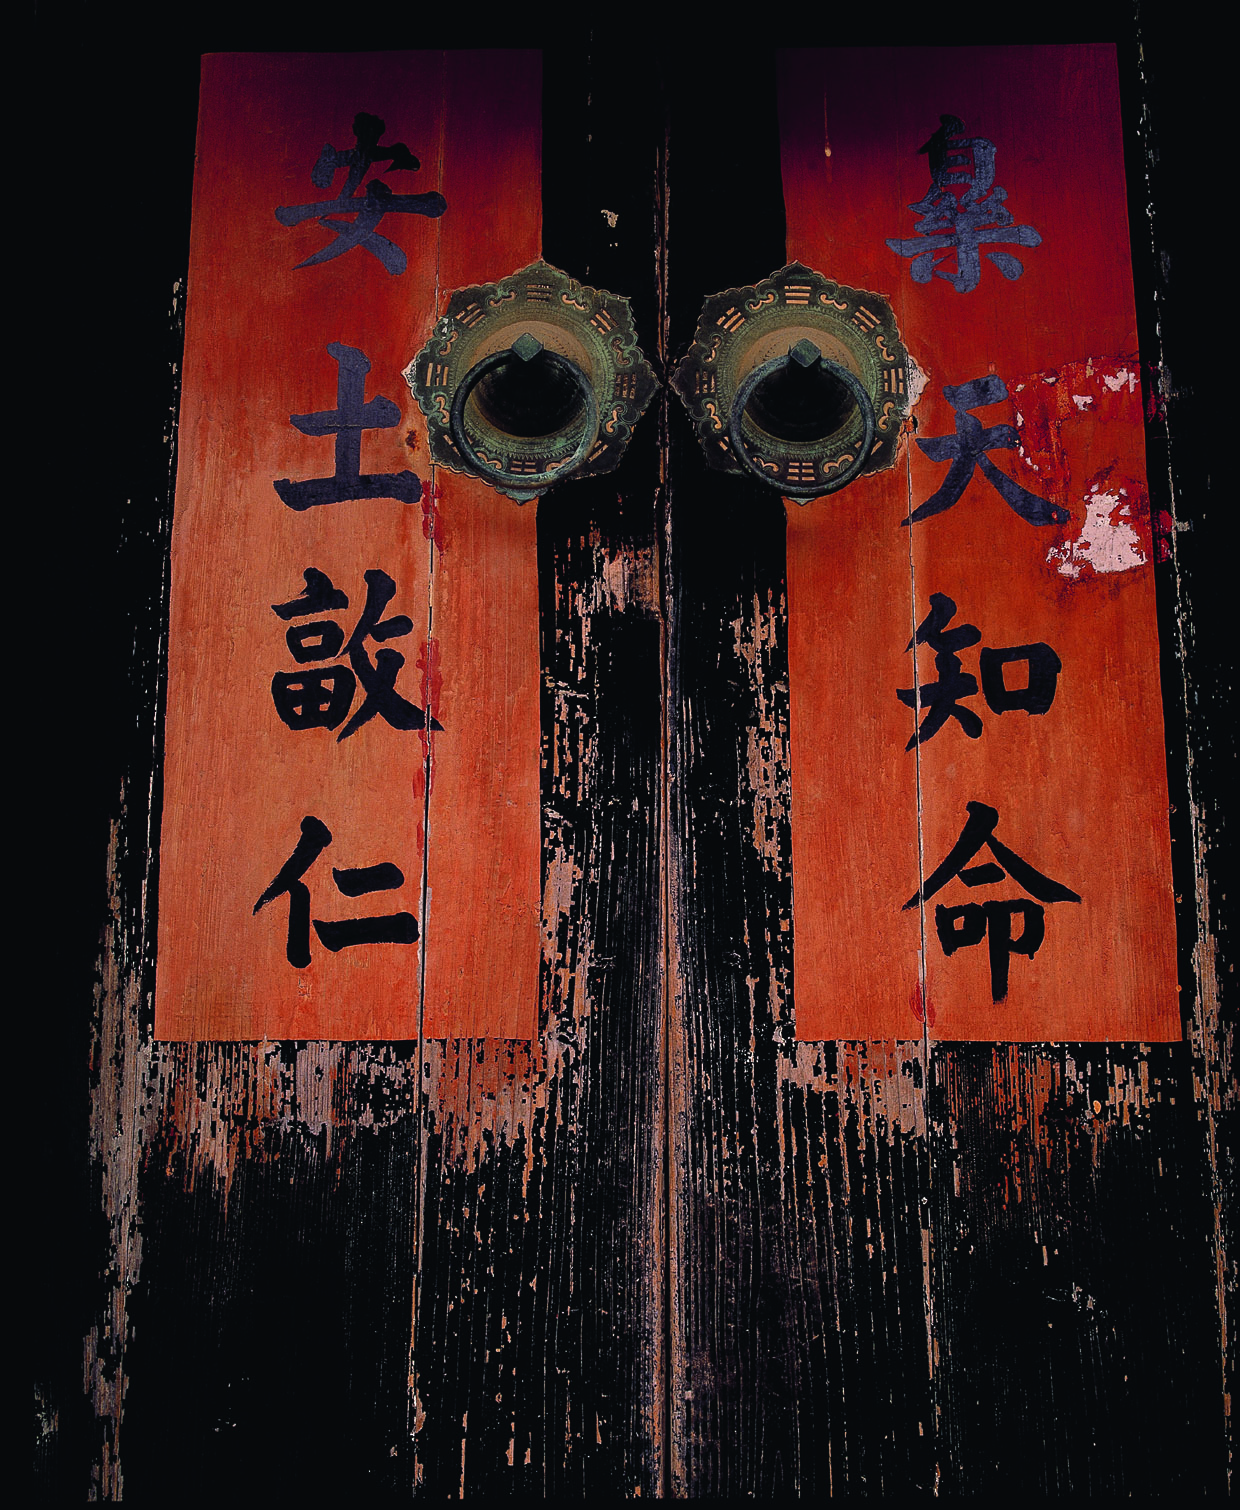 樂天知命
安土敦仁